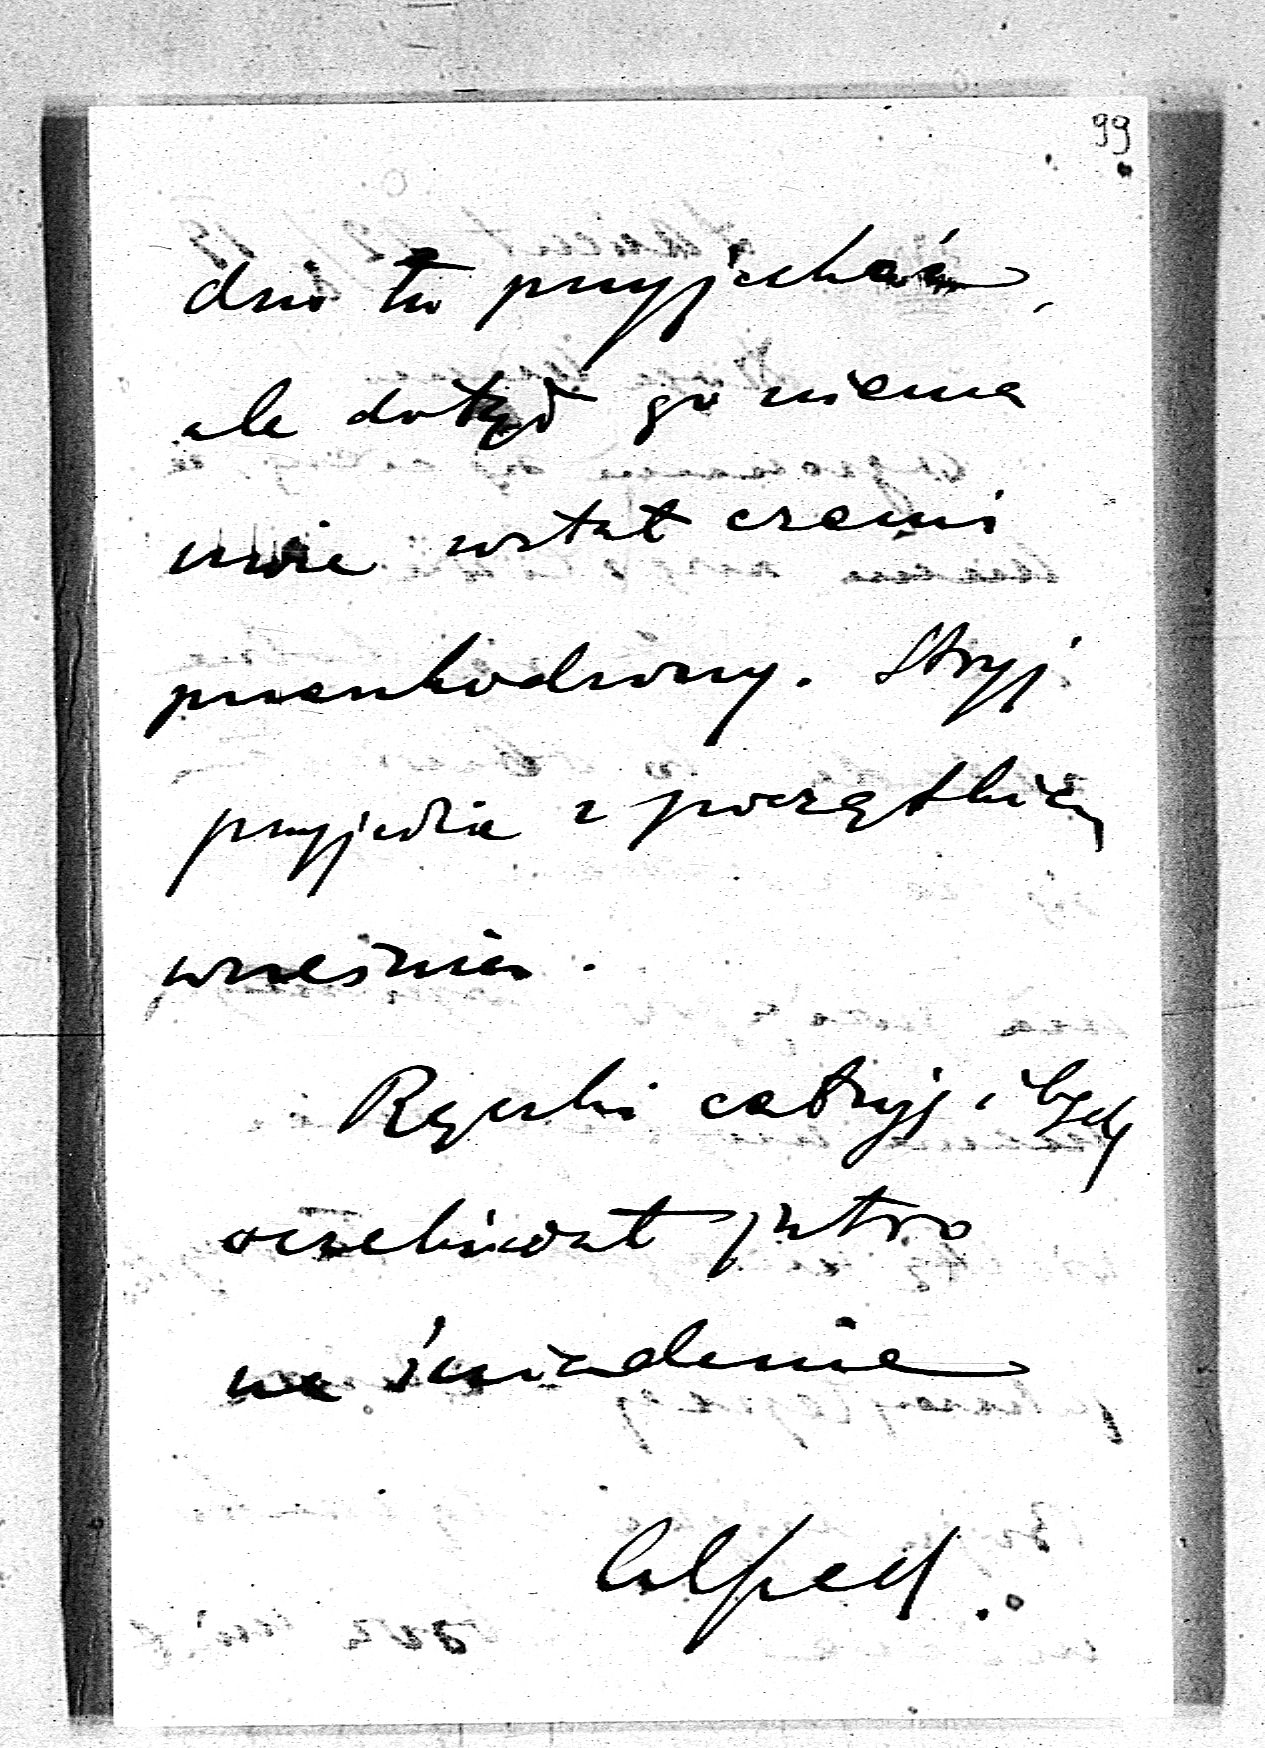 99
dziś tu przyjechać,
ale dotąd go niema
może został czemś
przeszkodzony. Stryj
przyjedzie z początkiem
września.
Rączki całuję i będę
oczekiwał jutro
na śniadanie
Alfred.